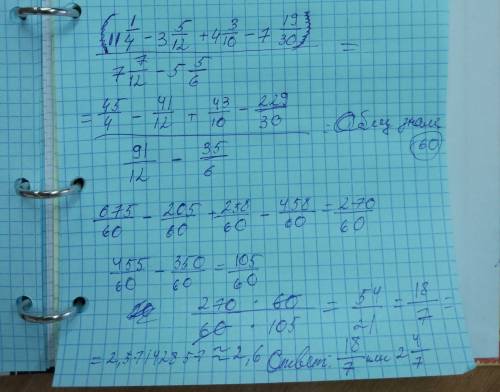 (11 1/4 - 3 5/12 + 4 3/10 - 7 19/30)
7 7/12 - 5 5/6 =
= 45/4 - 41/12 + 43/10 - 229/30 . Общ знам
91/12 - 35/6 60
675/60 - 205/60 + 258/60 - 458/60 = 270/60
455/60 - 350/60 = 105/60
270 · 60 / 60 · 105 = 54/21 = 18/7 =
= 2,57142857 ≈ 2,6 Ответ: 18/7 или 2 4/7